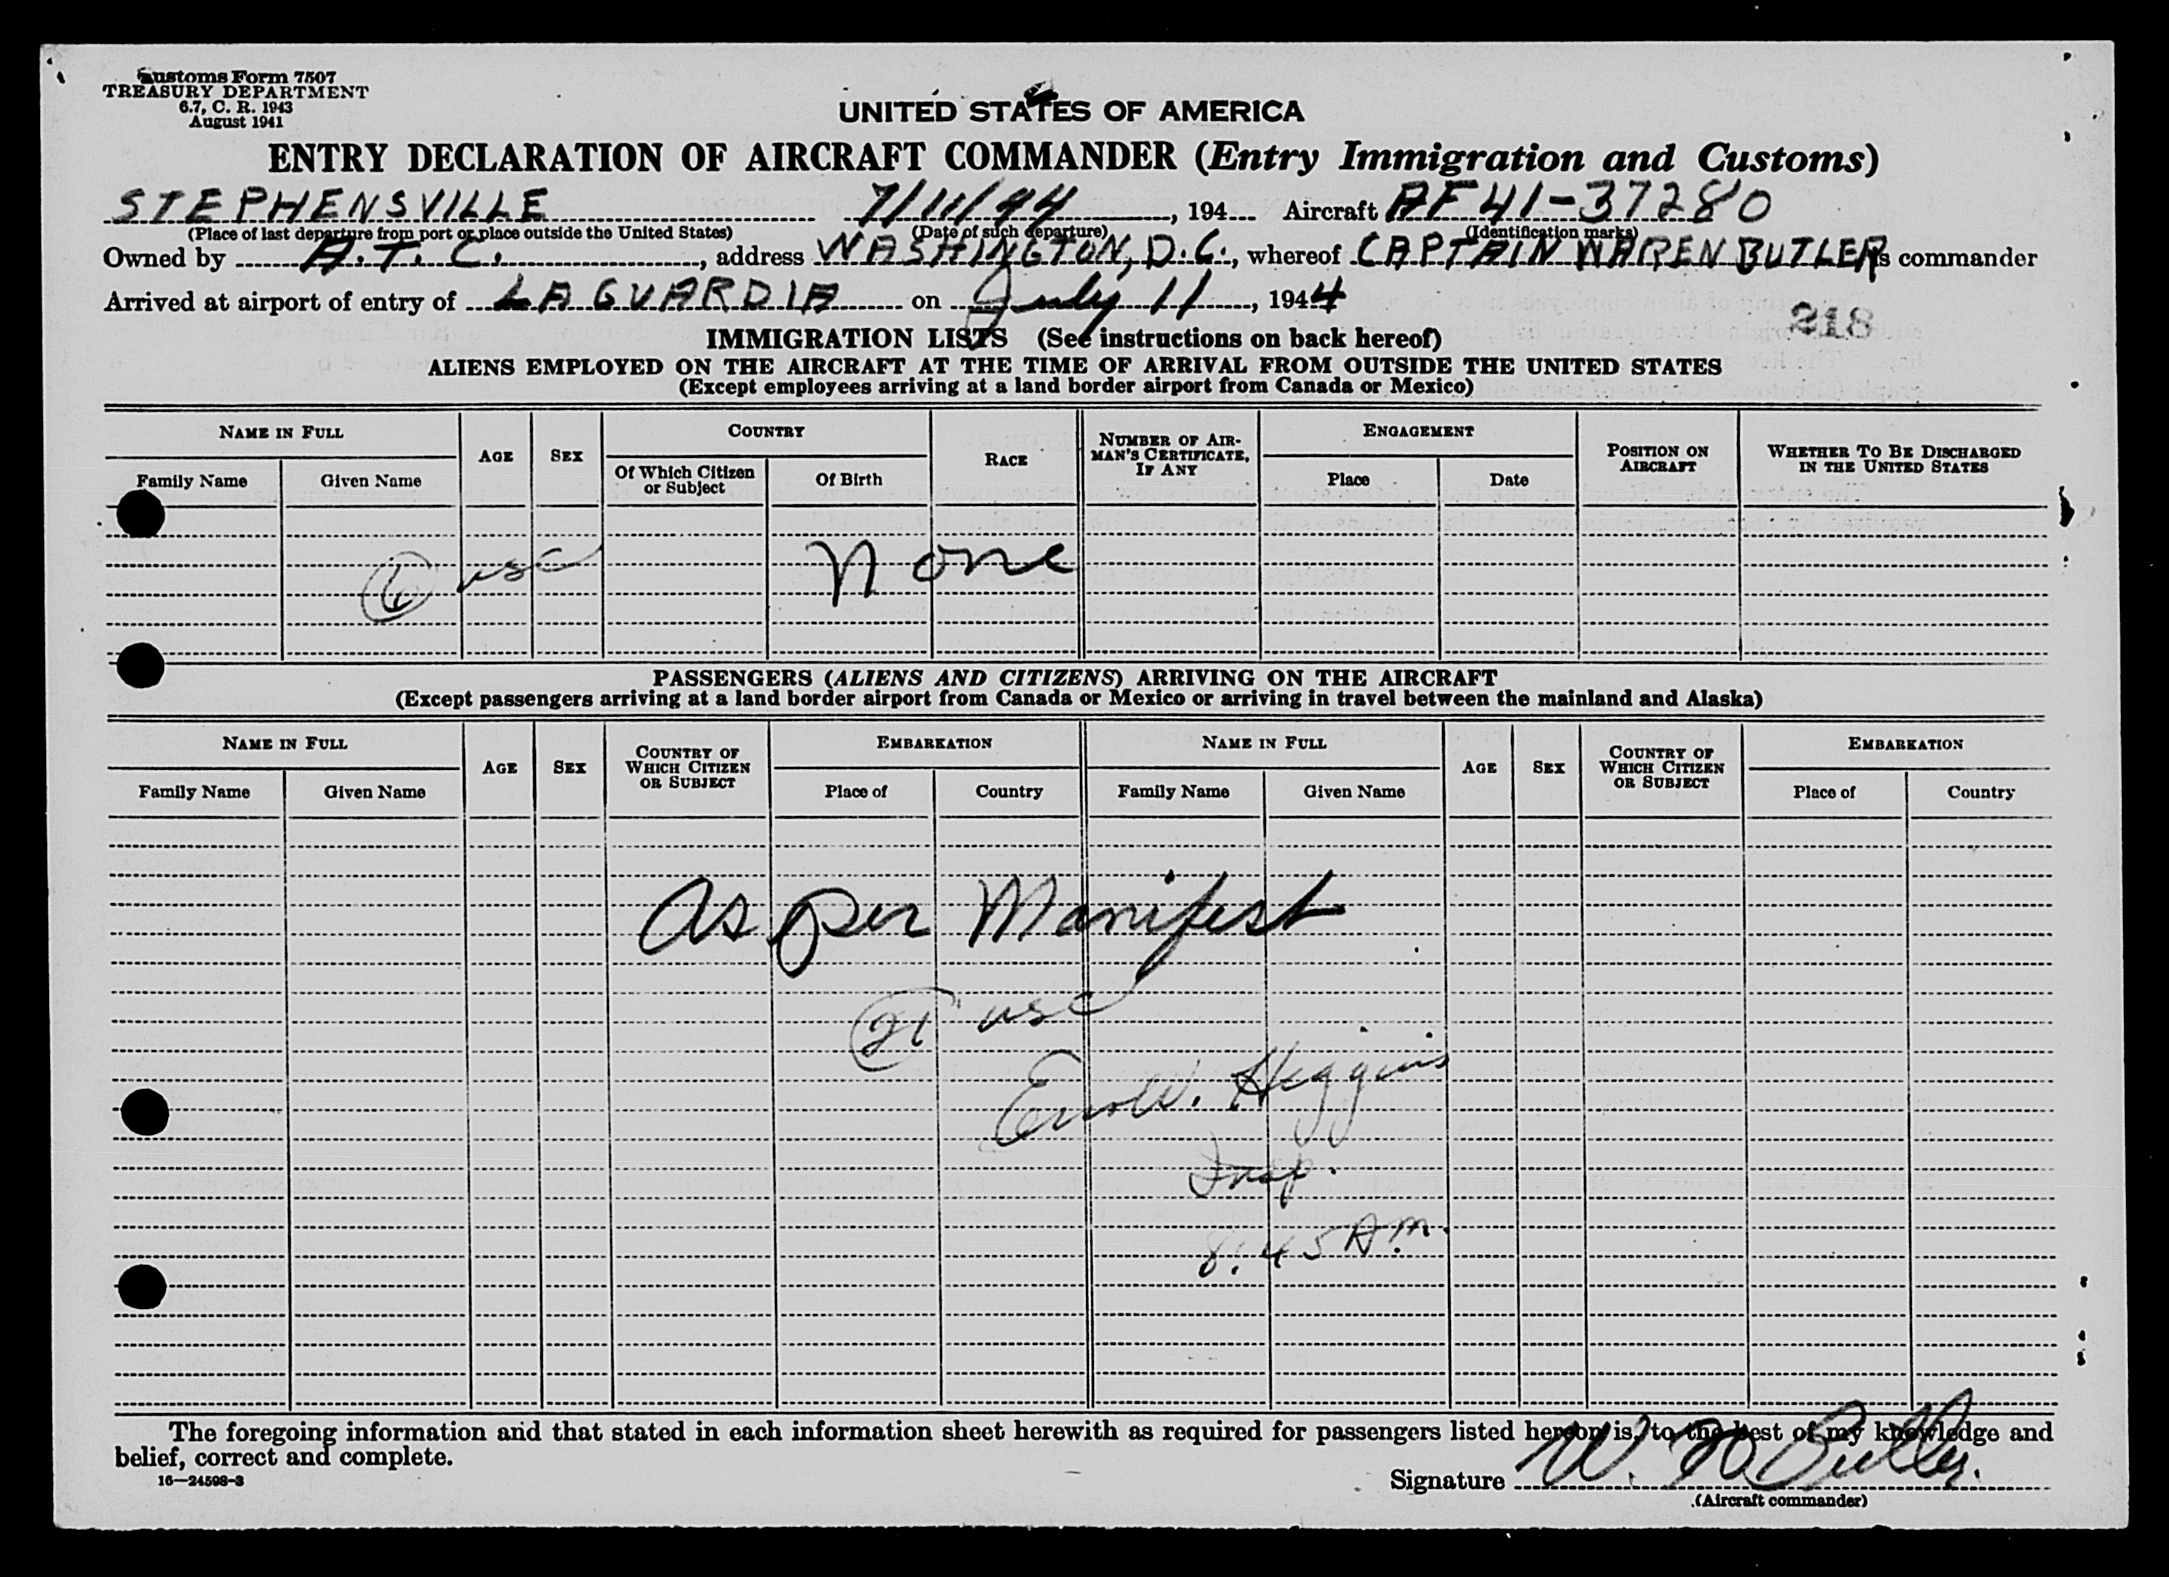 Customs Form 7507
TREASURY DEPARTMENT
6.7, C. R. 1943
August 1941
UNITED STATES OF AMERICA
ENTRY DECLARATION OF AIRCRAFT COMMANDER (Entry Immigration and Customs)
STEPHENSVILLE 7/11/44, 194 Aircraft AF 41-37280
(Place of last departure from port or place outside the United States) (Date of such departure) (Identification marks)
Owned by A.T.C., address WASHINGTON, D.C., whereof CAPTAIN WAREN BUTLER is commander
Arrived at airport of entry of LAGUARDIA on July 11, 1944
218
IMMIGRATION LISTS (See instructions on back hereof)
ALIENS EMPLOYED ON THE AIRCRAFT AT THE TIME OF ARRIVAL FROM OUTSIDE THE UNITED STATES
(Except employees arriving at a land border airport from Canada or Mexico)
NAME IN FULL AGE SEX COUNTRY RACE NUMBER OF AIRMAN'S CERTIFICATE, IF ANY ENGAGEMENT POSITION ON AIRCRAFT WHETHER TO BE DISCHARGED IN THE UNITED STATES
Family Name Given Name Of Which Citizen or Subject Of Birth Place Date
6 usc None
PASSENGERS (ALIENS AND CITIZENS) ARRIVING ON THE AIRCRAFT
(Except passengers arriving at a land border airport from Canada or Mexico or arriving in travel between the mainland and Alaska)
NAME IN FULL AGE SEX COUNTRY OF WHICH CITIZEN OR SUBJECT EMBARKATION NAME IN FULL AGE SEX COUNTRY OF WHICH CITIZEN OR SUBJECT EMBARKATION
Family Name Given Name Place of Country Family Name Given Name Place of Country
As per Manifest
21 usc
W. Higgins
Insp.
8:45 A.M.
The foregoing information and that stated in each information sheet herewith as required for passengers listed hereon is, to the best of my knowledge and
belief, correct and complete.
16—24598-3
Signature W. Butler.
(Aircraft commander)